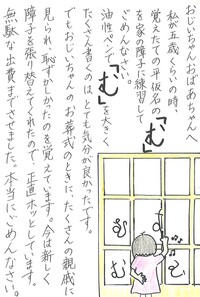 おじいちゃんおばあちゃんへ
私が五歳くらいの時、
覚えたての平仮名の「む」
を家の障子に練習して
ごめんなさい。
油性ペンで「む」を大きく
たくさん書くのは、とても気分が良かったです。
でもおじいちゃんのお葬式のときに、たくさんの親戚に
見られ、恥ずかしかったのを覚えています。今は新しく
障子を張り替えてくれたので、正直ホッとしています。
無駄な出費までさせました。本当にごめんなさい。
む
む
む
む